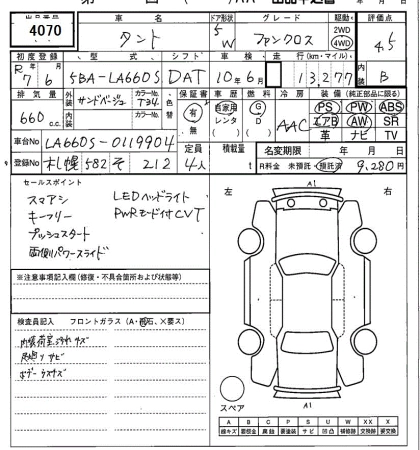 出品番号 車名 ドア形状 グレード 駆動 評価点
4070 タント 5 W ファンクロス 2WD 4WD 4.5
初度登録 型式 シフト 車検 走行(km・マイル) 内装
R 7年6月 5BA-LA660S DAT 10年6月 13,277 B
排気量 外装 カラーNo. 色替 保証書 車歴 燃料 冷房 装備(純正部品に限る)
660c.c. サンドベージュ T34 有・無 自家用 レンタ G D AAC PS PW ABS
内装 カラーNo. エアB AW SR
革 ナビ TV
車台No. LA660S-0119904 定員 積載量 名変期限 年 月 日
登録No. 札幌 582 そ 212 4人 t R料金 未預託・預託済 9,280円
セールスポイント
スマアシ LEDヘッドライト
キーフリー PWRモード付CVT
プッシュスタート
両側パワースライド
左 A1 右
※注意事項記入欄(修復・不具合箇所および状態等)
検査員記入 フロントガラス(A・飛石、×要ス)
ボデーウスキズ
スペア A1
A B C P S U W X XX
線キズ 腐蝕 要塗装 サビ 凹凸 補修跡 要交換 交換